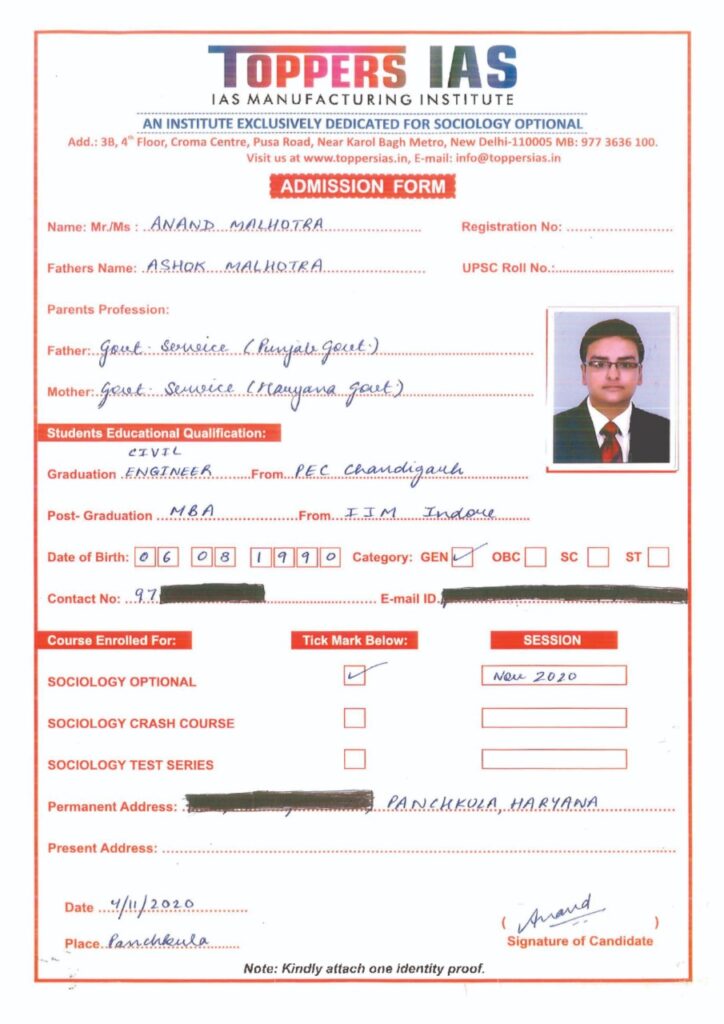 TOPPERS IAS
IAS MANUFACTURING INSTITUTE
AN INSTITUTE EXCLUSIVELY DEDICATED FOR SOCIOLOGY OPTIONAL
Add.: 3B, 4th Floor, Croma Centre, Pusa Road, Near Karol Bagh Metro, New Delhi-110005 MB: 977 3636 100.
Visit us at www.toppersias.in, E-mail: info@toppersias.in
ADMISSION FORM
Name: Mr./Ms : ANAND MALHOTRA Registration No:
Fathers Name: ASHOK MALHOTRA UPSC Roll No.:
Parents Profession:
Father: Govt. Service (Punjab Govt.)
Mother: Govt. Service (Haryana Govt)
Students Educational Qualification:
CIVIL
Graduation ENGINEER From PEC Chandigarh
Post- Graduation MBA From IIM Indore
Date of Birth: 06 08 1990 Category: GEN ✓ OBC SC ST
Contact No: 97 E-mail ID.
Course Enrolled For: Tick Mark Below: SESSION
SOCIOLOGY OPTIONAL ✓ Nov 2020
SOCIOLOGY CRASH COURSE
SOCIOLOGY TEST SERIES
Permanent Address: PANCHKULA, HARYANA
Present Address:
Date 4/11/2020
Place Panchkula
( Anand )
Signature of Candidate
Note: Kindly attach one identity proof.